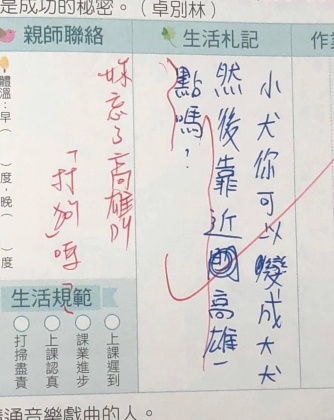 是成功的秘密。（卓別林）
親師聯絡
生活札記
作業
小犬你可以變成大犬
然後靠近高雄一
點嗎？
妳忘了高雄的
「打狗」嗎？
體溫：早（ ）度，晚（ ）度
生活規範
上課遲到
課業進步
上課認真
打掃盡責
通音樂戲曲的人。